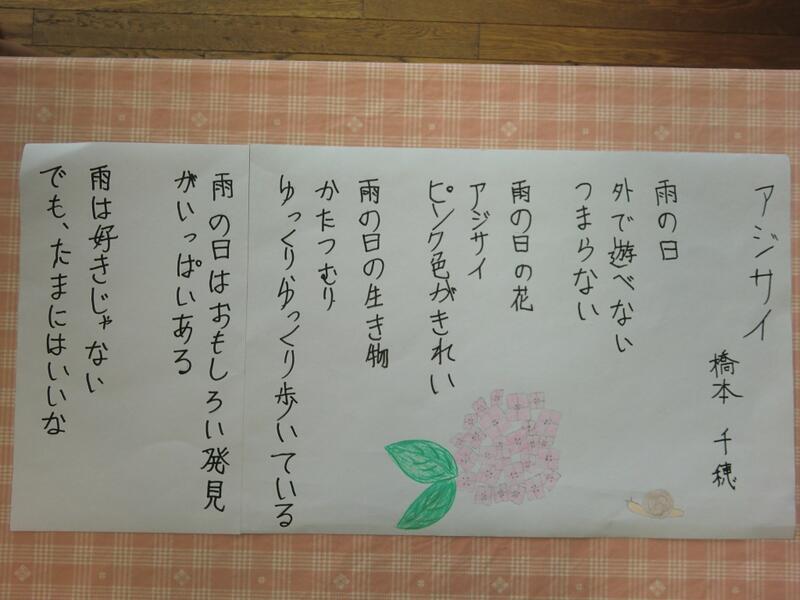 アジサイ
橋本 千穂
雨の日
外で遊べない
つまらない
雨の日の花
アジサイ
ピンク色がきれい
雨の日の生き物
かたつむり
ゆっくりゆっくり歩いている
雨の日はおもしろい発見
がいっぱいある
雨は好きじゃない
でも、たまにはいいな